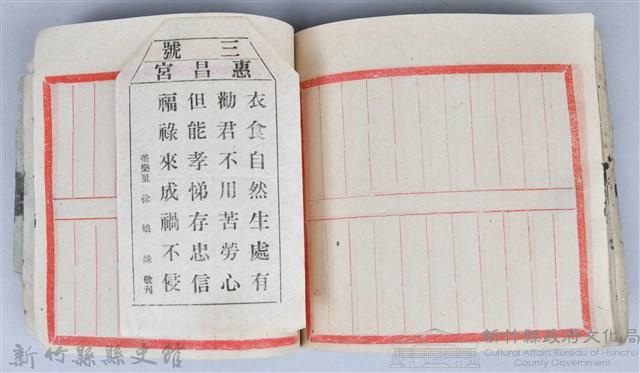 三號
惠昌宮
衣食自然生處有
勸君不用苦勞心
但能孝悌存忠信
福祿來成禍不侵
榮樂里 徐娘妹 敬刊
新竹縣縣史館
新竹縣政府文化局
Cultural Affairs Bureau of Hsinchu
County Government